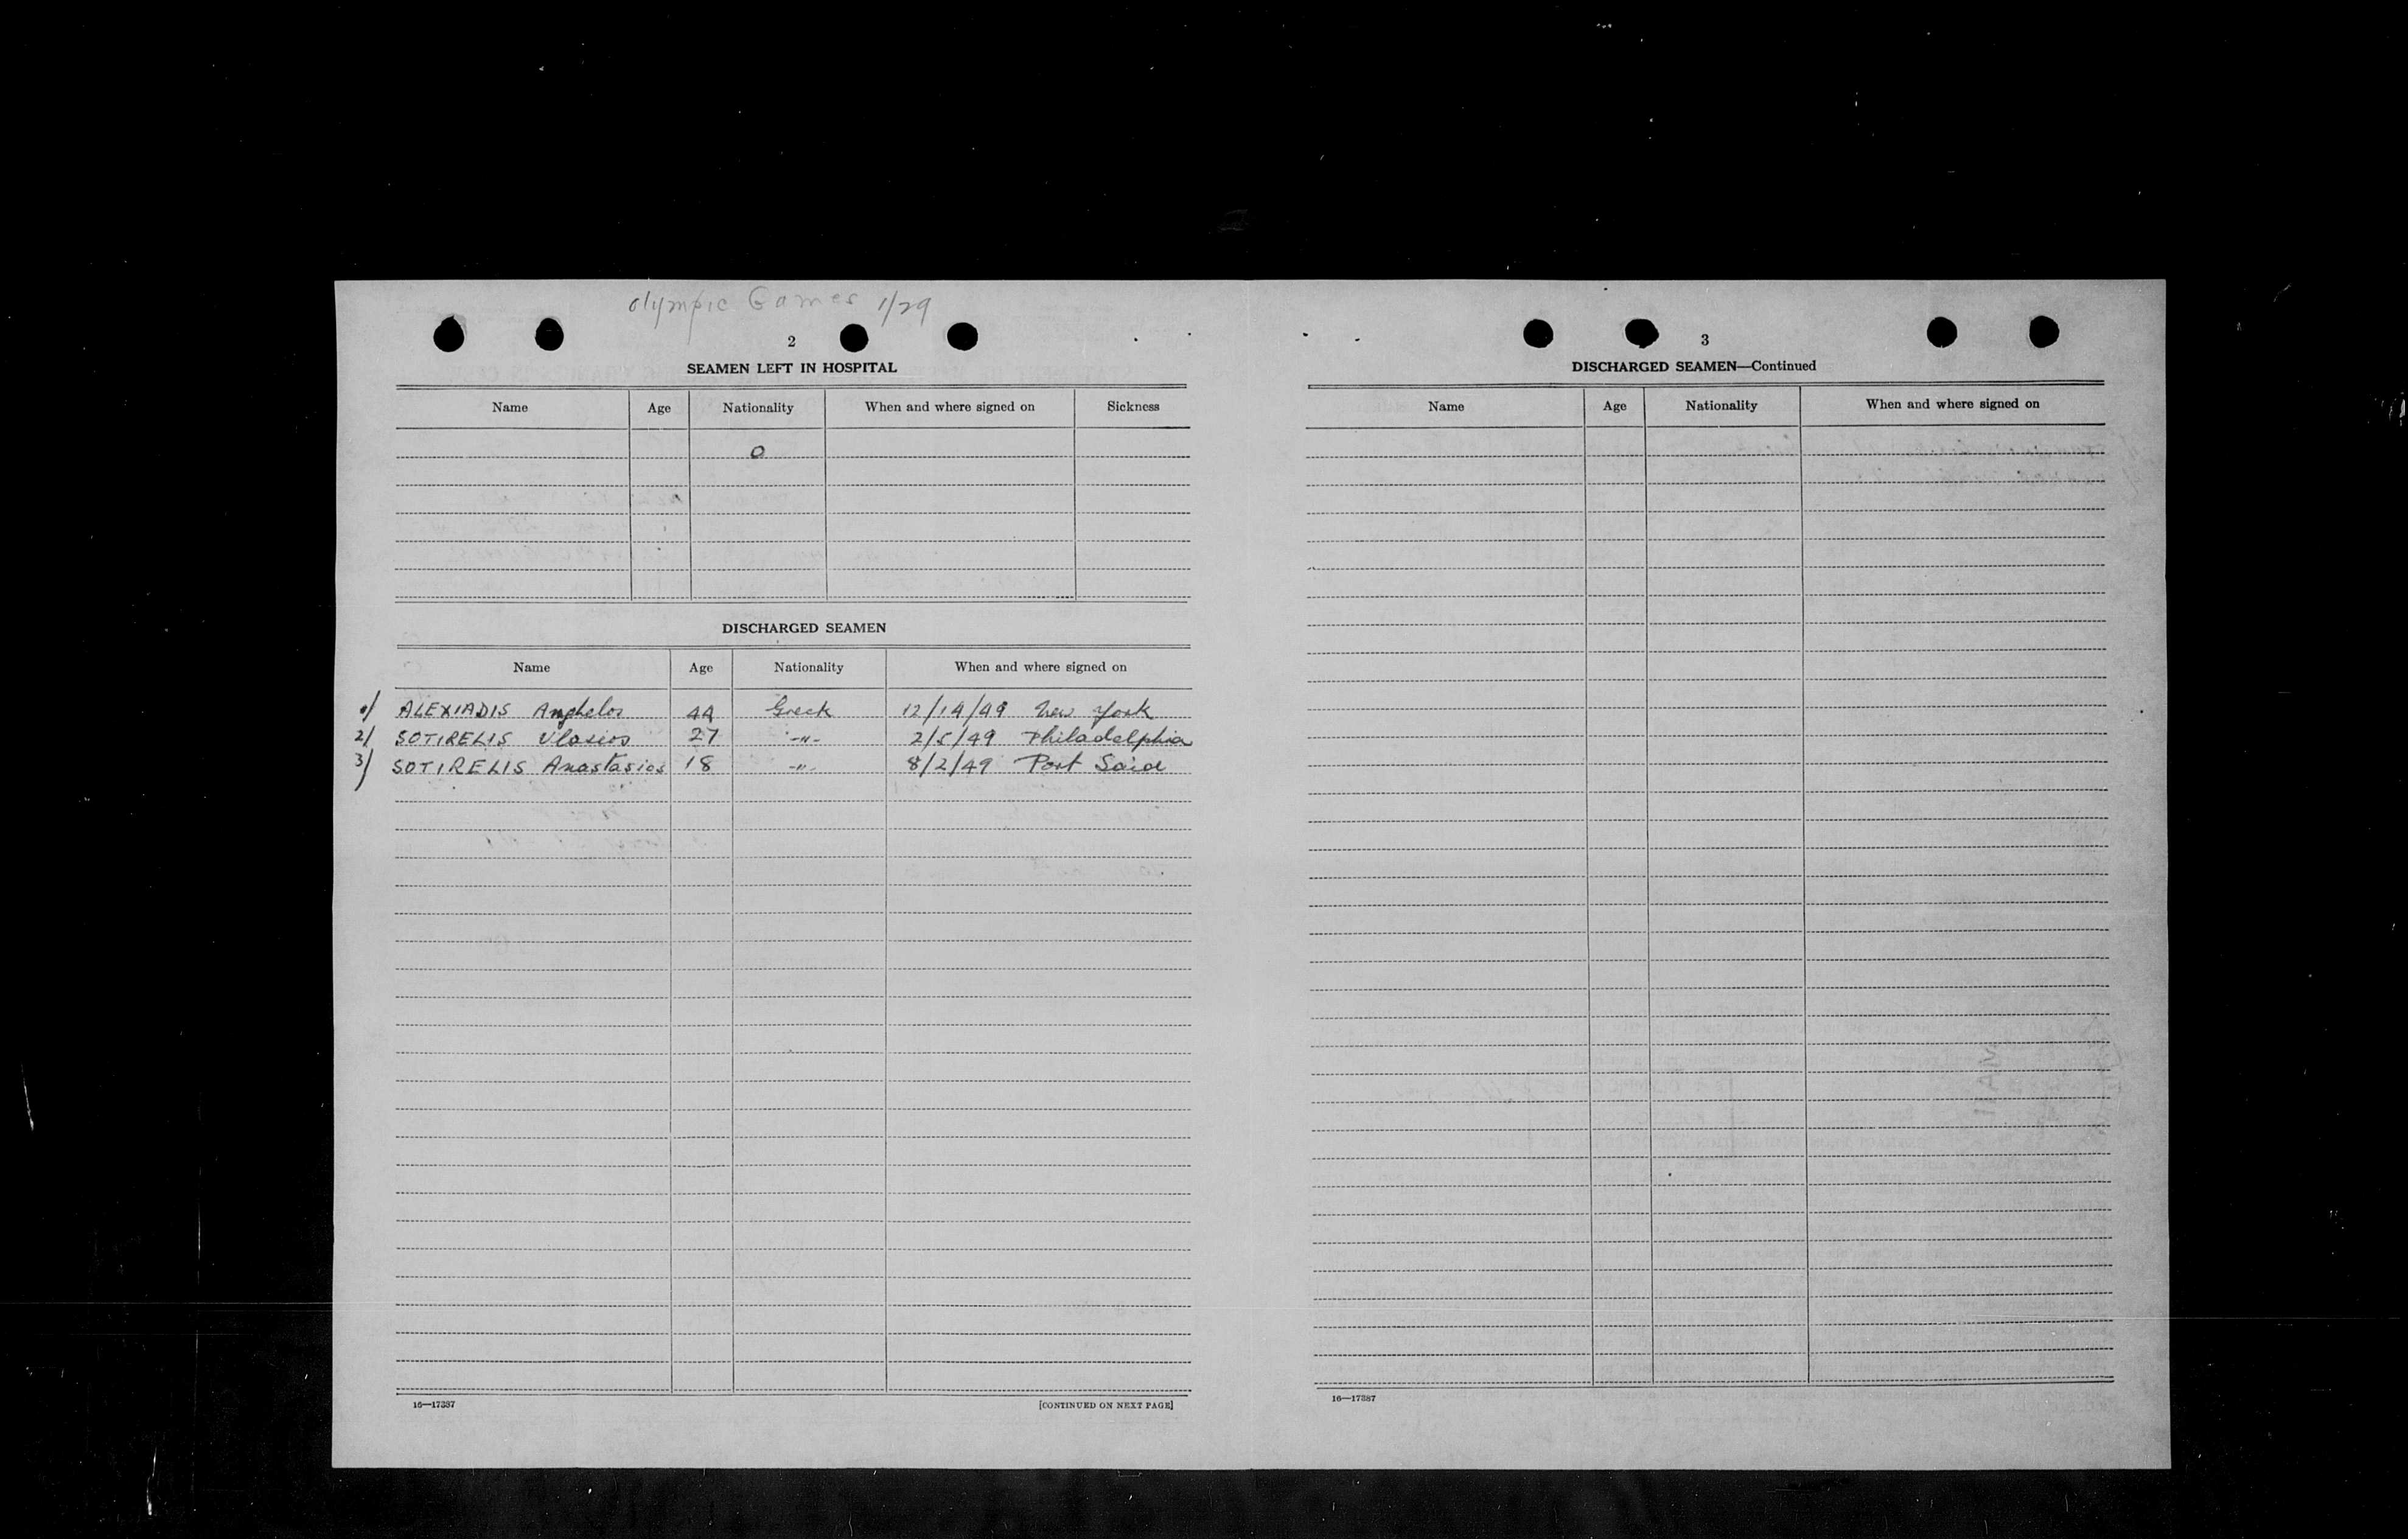 Olympic Games 1/29
2
SEAMEN LEFT IN HOSPITAL
Name Age Nationality When and where signed on Sickness
0
DISCHARGED SEAMEN
Name Age Nationality When and where signed on
1/ ALEXIADIS Anghelos 44 Greek 12/14/48 New York
2/ SOTIRELIS Vlasios 27 -"- 2/5/49 Philadelphia
3/ SOTIRELIS Anastasios 18 -"- 8/2/49 Port Said
16—17387 [CONTINUED ON NEXT PAGE]
3
DISCHARGED SEAMEN—Continued
Name Age Nationality When and where signed on
16—17387